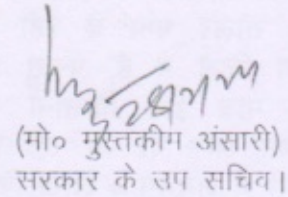 (मो० मुस्तकीम अंसारी)
सरकार के उप सचिव।